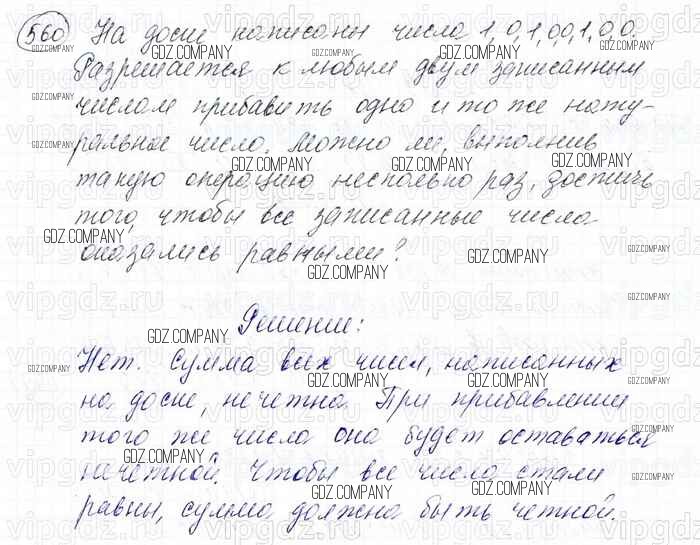 560 На доске написаны числа 1, 0, 1, 0, 0, 1, 0, 0.
Разрешается к любым двум записанным
числам прибавить одно и то же нату-
ральное число. Можно ли, выполнив
такую операцию несколько раз, достичь
того, чтобы все записанные числа
оказались равными?
Решение:
Нет. Сумма всех чисел, написанных
на доске, нечетна. При прибавлении
того же числа она будет оставаться
нечетной. Чтобы все числа стали
равны, сумма должна быть четной.